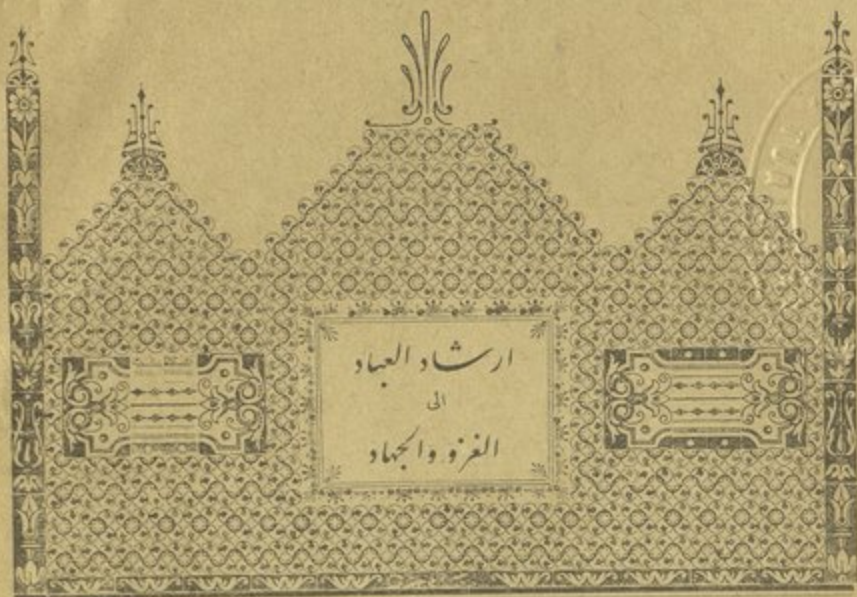 ارشاد العباد
الى
الغزو والجهاد